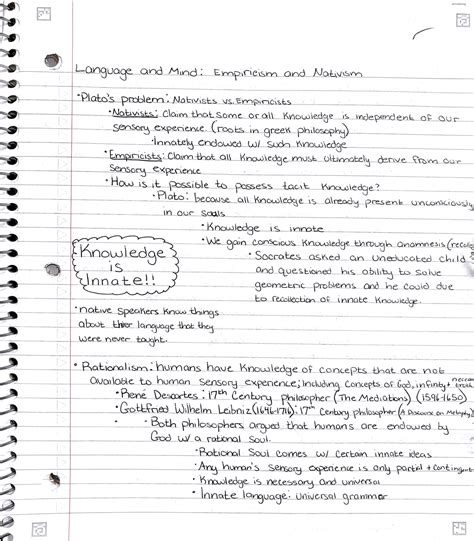 Language and Mind: Empiricism and Nativism
• Plato's problem: Nativists vs. Empiricists
• Nativists: Claim that some or all Knowledge is independent of our
sensory experience. (roots in greek philosophy)
• Innately endowed w/ such Knowledge
• Empiricists: Claim that all Knowledge must ultimately derive from our
sensory experience
• How is it possible to possess tacit Knowledge?
• Plato: because all Knowledge is already present unconsciously
in our souls
• Knowledge is innate
• We gain conscious Knowledge through anamnesis
• Socrates asked an uneducated child
and questioned his ability to solve
geometric problems and he could due
to recollection of innate Knowledge.
Knowledge
is
Innate!!
• native speakers Know things
about their language that they
were never taught.
• Rationalism: humans have Knowledge of concepts that are not
available to human sensory experience; Including concepts of God, infinity +
• René Descartes: 17th Century Philosopher (The Mediations) (1596-1650)
• Gottfried Wilhelm Leibniz (1646-1716): 17th Century philosopher (A Discourse on Metaphy
• Both philosophers argued that humans are endowed by
God w/ a rational soul.
• Rational Soul comes w/ certain innate ideas
• Any human's sensory experience is only partial + contingent
• Knowledge is necessary and universal
• Innate language: universal grammar